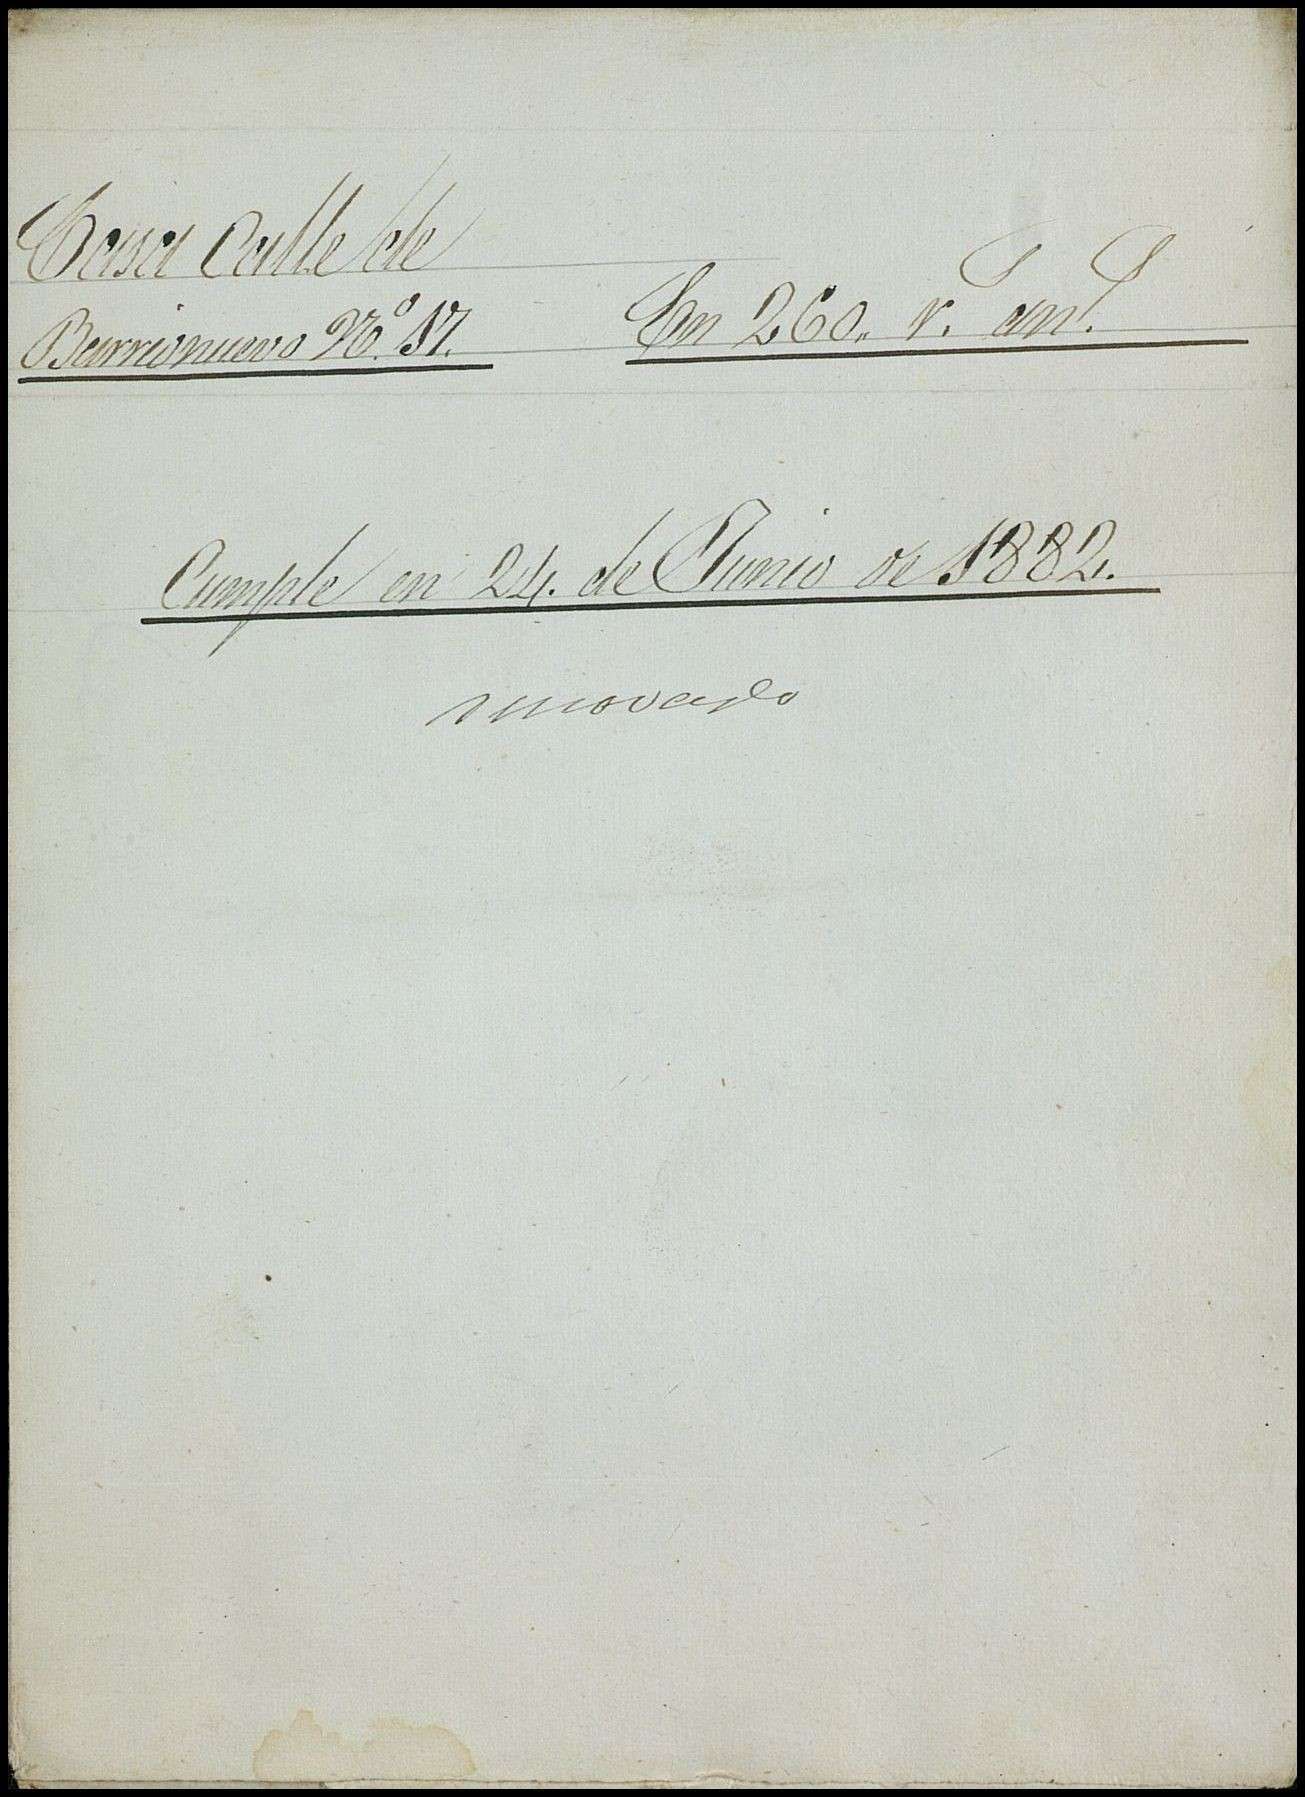 Casa Calle de
Barrionuevo Nº. 17.
En 260. r.s an.s
Cumple en 24. de Junio de 1882.
renovado